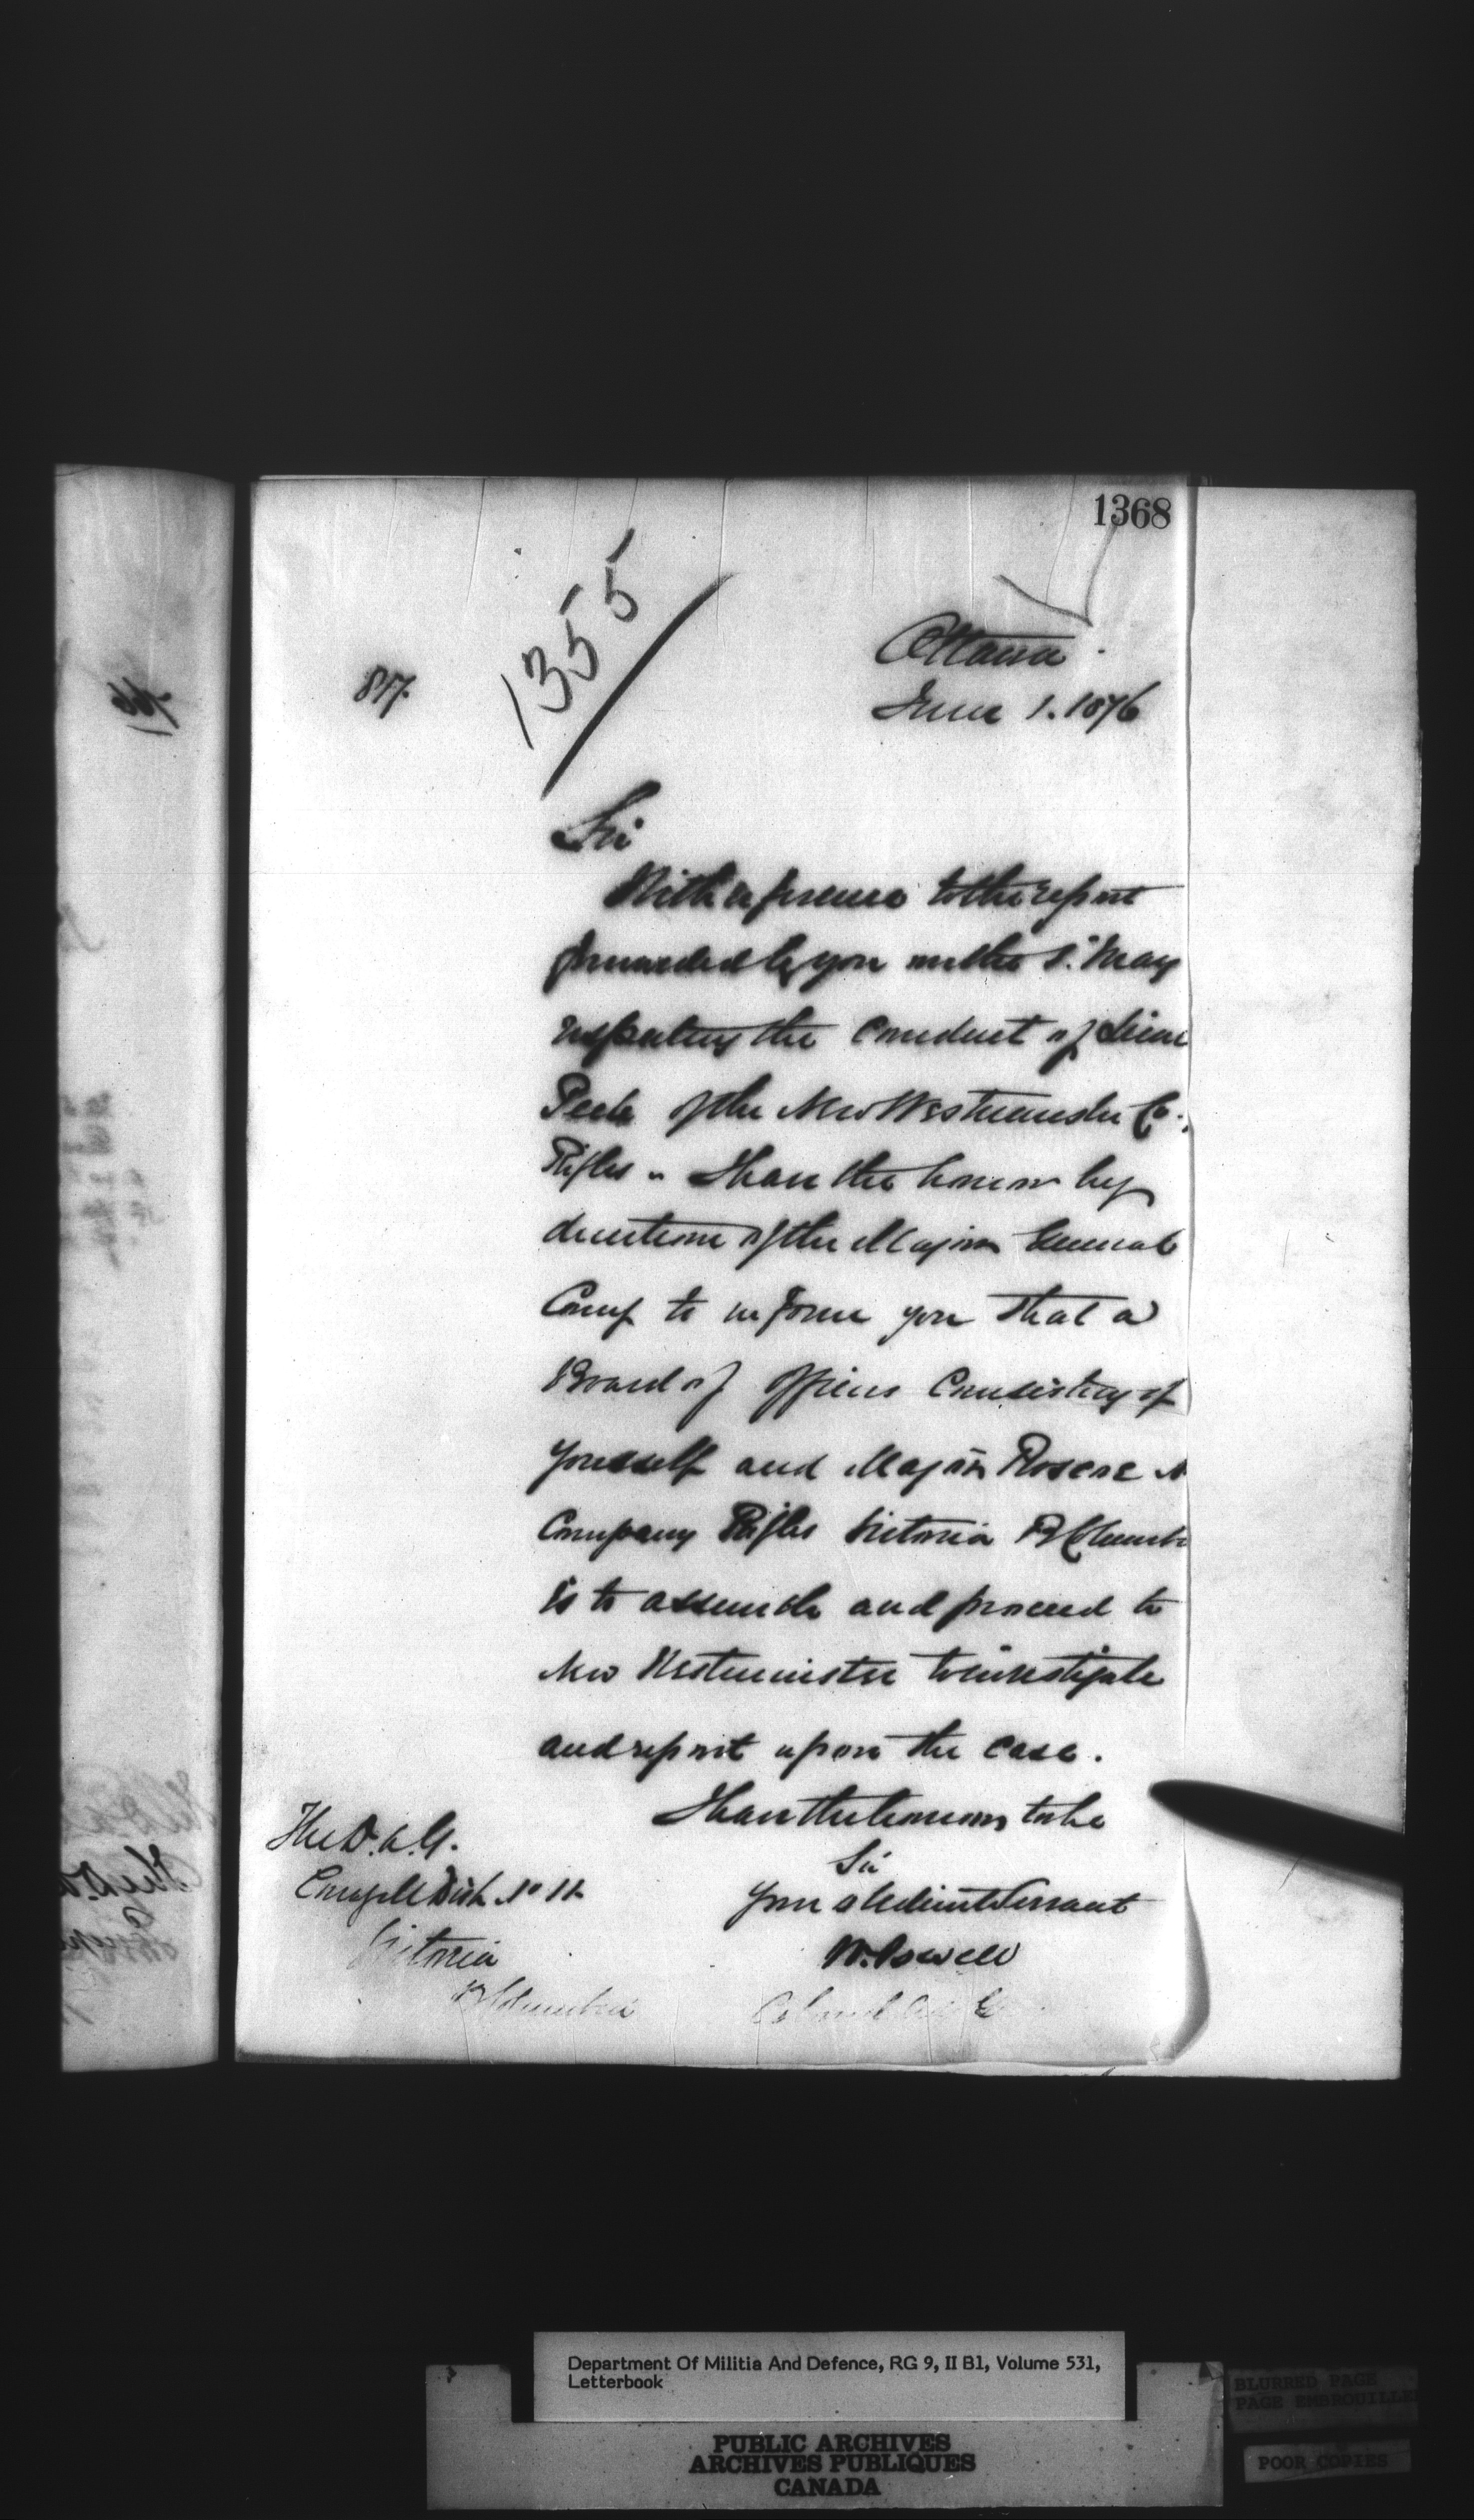 1368
1355
817.
Ottawa.
June 1. 1876
Sir
With reference to the report
forwarded by you on the May
respecting the Conduct of Lieu
Peele of the New Westminster Co.
Rifles - I have the honor by
direction of the Major General
Comg to inform you that a
Board of Officers Consisting of
yourself and Major Roscoe
Company Rifles Victoria B Columbi
is to assemble and proceed to
New Westminster to investigate
and report upon the case.
I have the honor to be
Sir
Your obedient Servant
W. Powell
Colonel
The D.A.G.
Comg Mil Dist No 11
Victoria
B Columbia
Department Of Militia And Defence, RG 9, II B1, Volume 531,
Letterbook
PUBLIC ARCHIVES
ARCHIVES PUBLIQUES
CANADA
BLURRED PAGE
PAGE EMBROUILLE
POOR COPIES